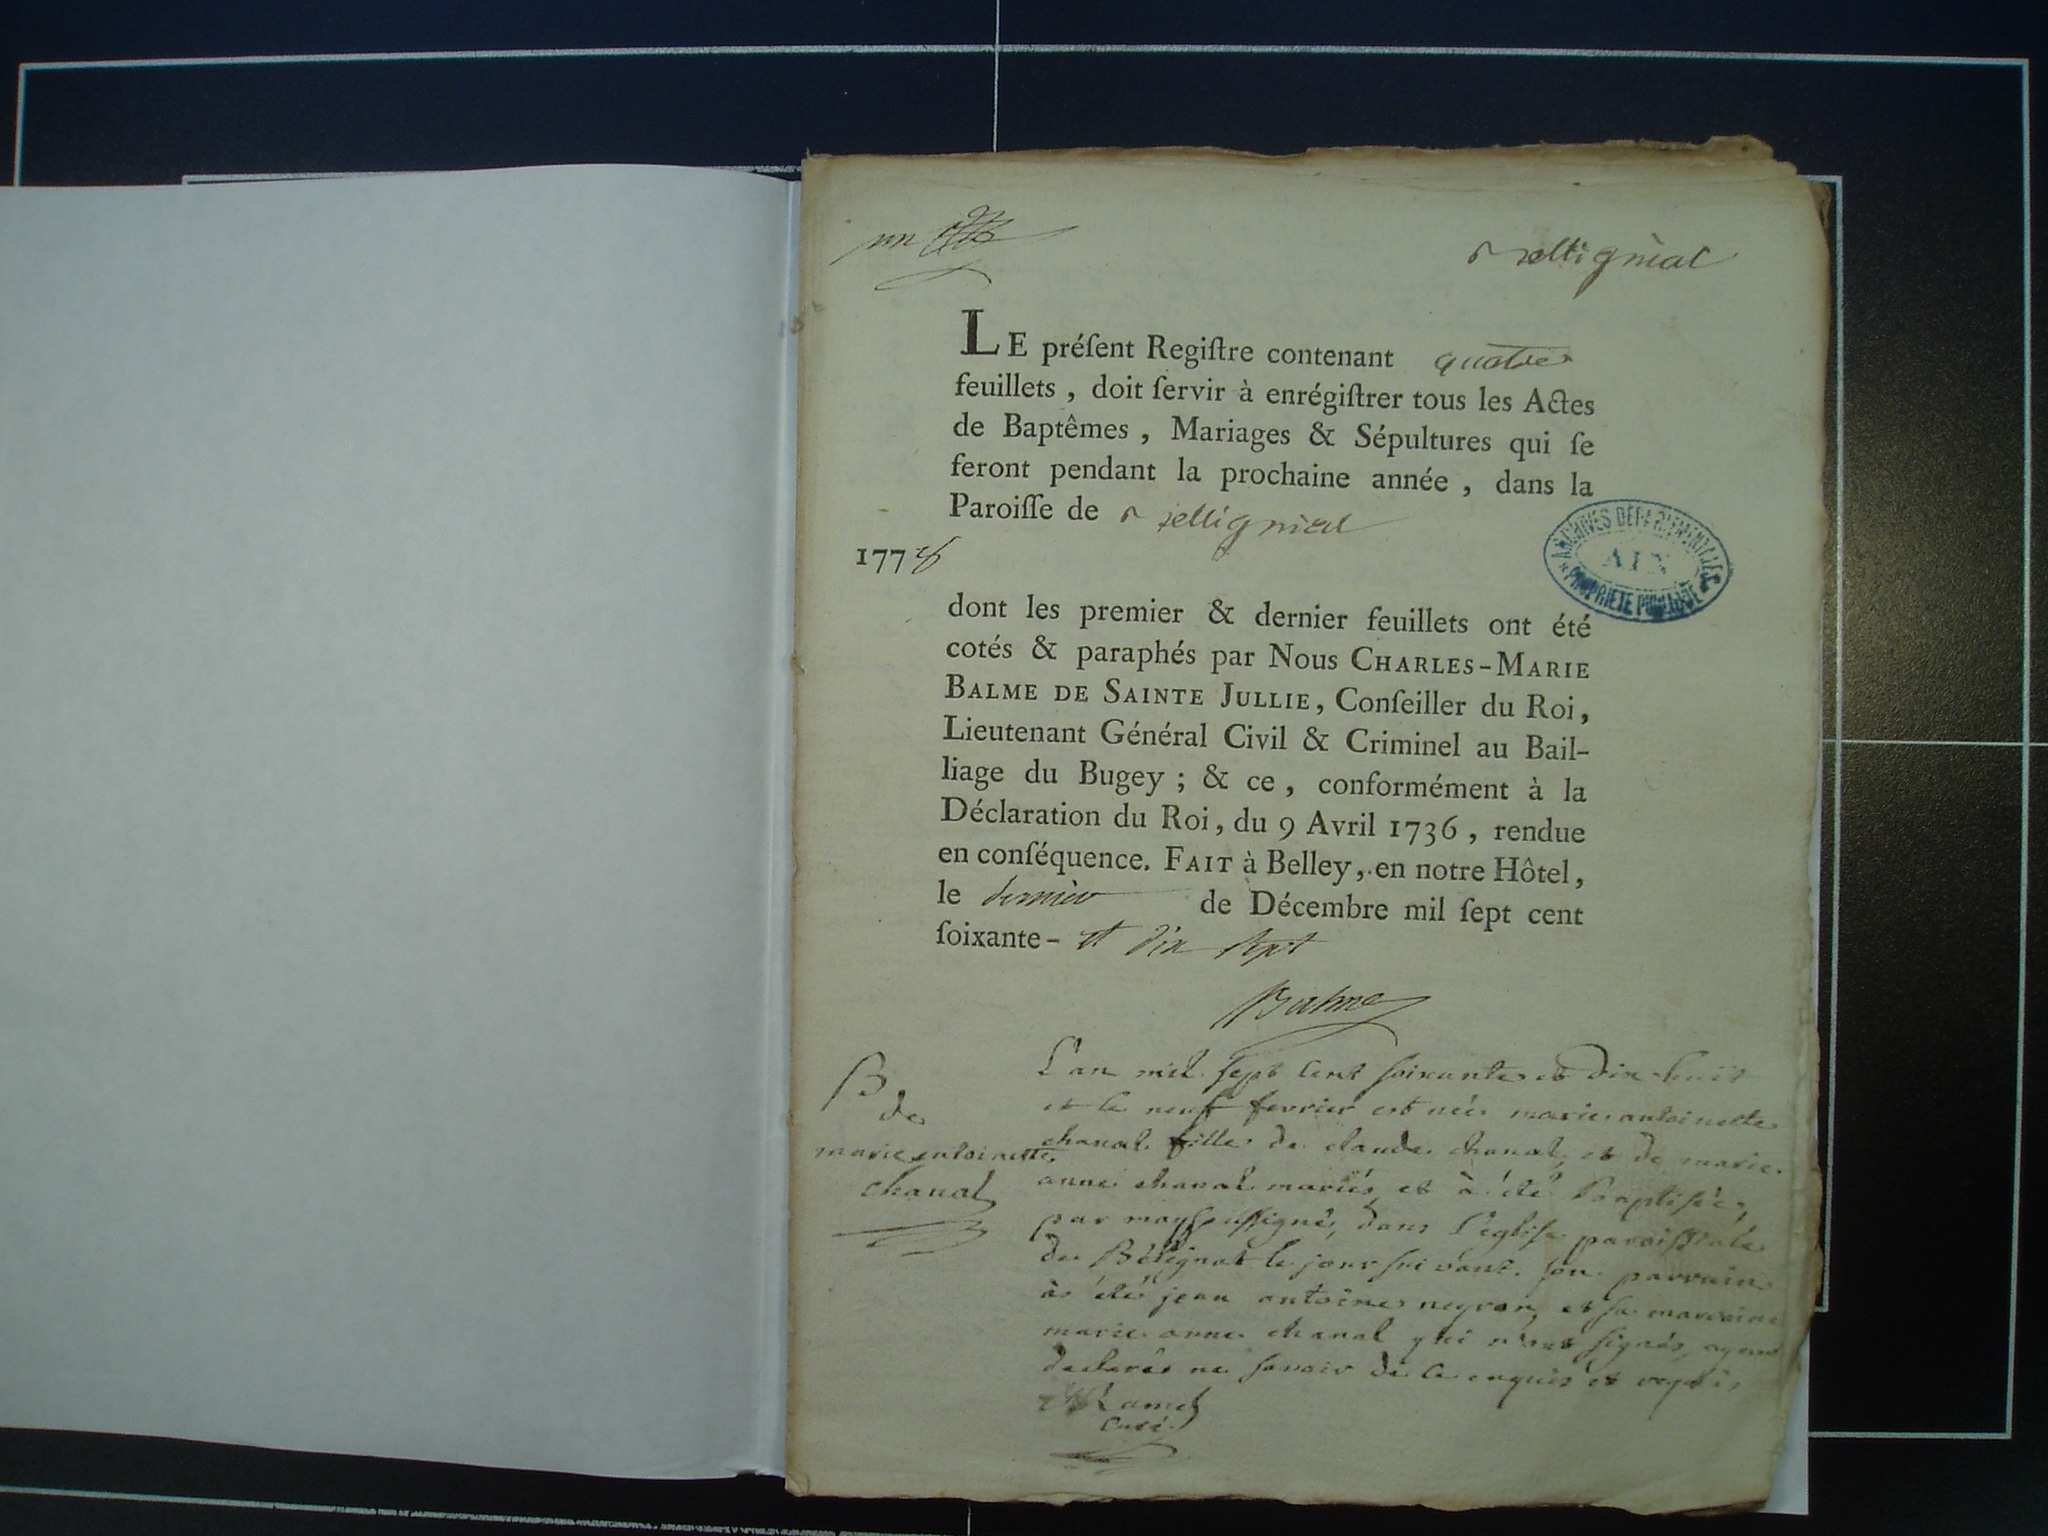 un
Bellignat
LE préſent Regiſtre contenant quatre
feuillets, doit ſervir à enrégiſtrer tous les Actes
de Baptêmes, Mariages & Sépultures qui ſe
feront pendant la prochaine année, dans la
Paroiſſe de Bellignat
1778
ARCHIVES DÉPARTEMENTALES
AIN
PROPRIÉTÉ PUBLIQUE
dont les premier & dernier feuillets ont été
cotés & paraphés par Nous CHARLES-MARIE
BALME DE SAINTE JULLIE, Conſeiller du Roi,
Lieutenant Général Civil & Criminel au Bail-
liage du Bugey; & ce, conformément à la
Déclaration du Roi, du 9 Avril 1736, rendue
en conſéquence. FAIT à Belley, en notre Hôtel,
le dernier de Décembre mil ſept cent
ſoixante- et dix sept
Balme
B
de
marie antoinette
chanal
L'an mil sept cent soixante et dix huit
et le neuf fevrier est née marie antoinette
chanal fille de claude chanal, et de marie
anne chanal mariés, et à été baptisée,
par moy soussigné, dans l'eglise paroissiale
de Bélignat le jour suivant. son parrain
à été jean antoine negron, et sa marraine
marie anne chanal qui n'ont signés, ayant
declarés ne savoir de ce enquis et requis,
Ramel
curé